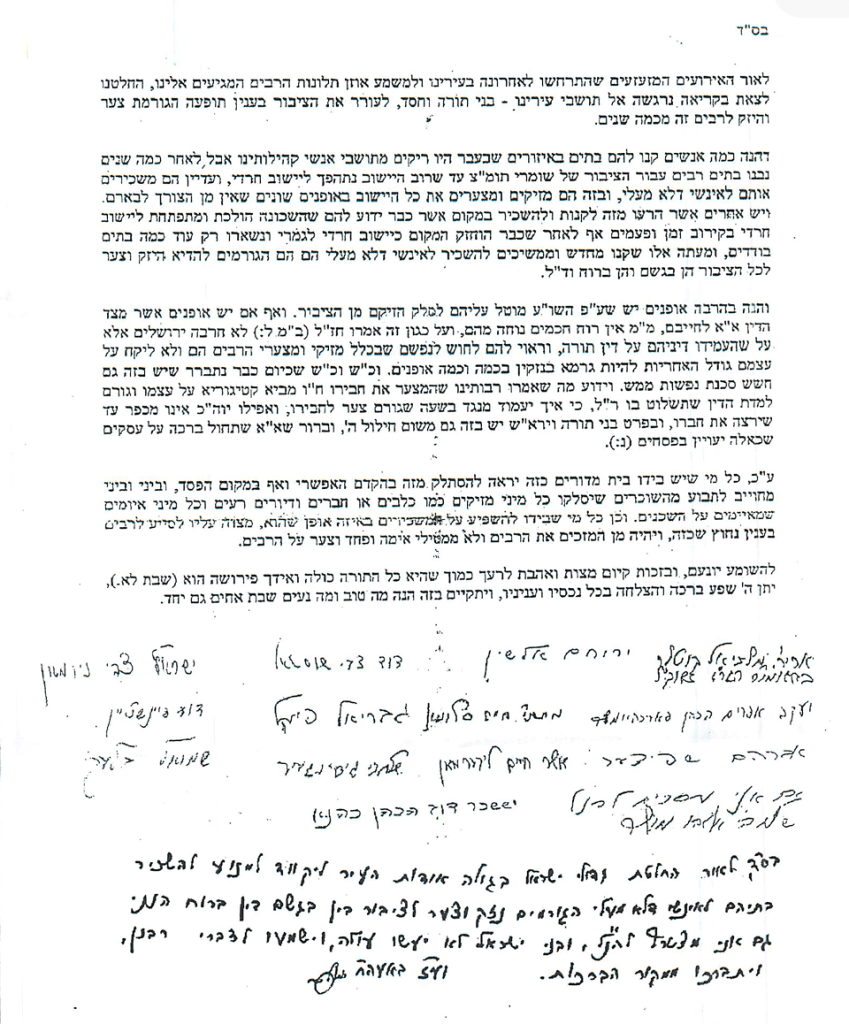 בס"ד
לאור האירועים המזעזעים שהתרחשו לאחרונה בעירינו ולמשמע אוזן תלונות הרבים המגיעים אלינו, החלטנו
לצאת בקריאה נרגשה אל תושבי עירינו - בני תורה וחסד, לעורר את הציבור בענין תופעה הגורמת צער
והיזק לרבים זה מכמה שנים.
דהנה כמה אנשים קנו להם בתים באיזורים שבעבר היו ריקים מתושבי אנשי קהילותינו אבל לאחר כמה שנים
נבנו בתים רבים עבור הציבור של שומרי תומ"צ עד שרוב היישוב נתהפך ליישוב חרדי, ועדיין הם משכירים
אותם לאינשי דלא מעלי, ובזה הם מזיקים ומצערים את כל היישוב באופנים שונים שאין מן הצורך לבארם.
ויש אחרים אשר הרעו מזה לקנות ולהשכיר במקום אשר כבר ידוע להם שהשכונה הולכת ומתפתחת ליישוב
חרדי בקירוב זמן ופעמים אף לאחר שכבר הוחזק המקום כיישוב חרדי לגמרי ונשארו רק עוד כמה בתים
בודדים, ומעתה אלו שקנו מחדש וממשיכים להשכיר לאינשי דלא מעלי הם הם הגורמים להדיא היזק וצער
לכל הציבור הן בגשם והן ברוח וד"ל.
והנה בהרבה אופנים יש שע"פ השו"ע מוטל עליהם לסלק הזיקם מן הציבור. ואף אם יש אופנים אשר מצד
הדין א"א לחייבם, מ"מ אין רוח חכמים נוחה מהם, ועל כגון זה אמרו חז"ל (ב"מ ל:) לא חרבה ירושלים אלא
על שהעמידו דיניהם על דין תורה, וראוי להם לחוש לנפשם שבכלל מזיקי ומצערי הרבים הם ולא ליקח על
עצמם גודל האחריות להיות גרמא בנזקין בכמה וכמה אופנים. וכ"ש וכ"ש שכיום כבר נתברר שיש בזה גם
חשש סכנת נפשות ממש. וידוע מה שאמרו רבותינו שהמצער את חבירו ח"ו מביא קטיגוריא על עצמו וגורם
למדת הדין שתשלוט בו ר"ל, כי איך יעמוד מנגד בשעה שגורם צער לחבירו, ואפילו יוה"כ אינו מכפר עד
שירצה את חברו, ובפרט בני תורה וירא"ש יש בזה גם משום חילול ה', וברור שא"א שתחול ברכה על עסקים
שכאלה יעויין בפסחים (נ:).
ע"כ, כל מי שיש בידו בית מדורים כזה יראה להסתלק מזה בהקדם האפשרי ואף במקום הפסד, וביני וביני
מחוייב לתבוע מהשוכרים שיסלקו כל מיני מזיקים כמו כלבים או חברים ודיורים רעים וכל מיני איומים
שמאיימים על השכנים. וכן כל מי שבידו להשפיע על המשכירים באיזה אופן שהוא, מצוה עליו לסייע לרבים
בענין נחוץ שכזה, ויהיה מן המזכים את הרבים ולא ממטילי אימה ופחד וצער על הרבים.
להשומע יונעם, ובזכות קיום מצות ואהבת לרעך כמוך שהיא כל התורה כולה ואידך פירושה הוא (שבת לא.),
יתן ה' שפע ברכה והצלחה בכל נכסיו ועניניו, ויתקיים בזה הנה מה טוב ומה נעים שבת אחים גם יחד.
ירוחם אלשין דוד צבי ישראל צבי ניומאן
יעקב אפרים הכהן מתתי' חיים סלומון גבריאל
אברהם שפיצער אשר חיים ליבערמאן שלמה
גם אני מסכים לכנ"ל יששכר דוב הכהן כהנא
בס"ד לאור החלטת גדולי ישראל בגולה אודות העיר ליקווד למנוע להשכיר
בתיהם לאינשי דלא מעלי הגורמים נזק וצער לציבור בין בגשם בין ברוח הנני
גם אני מצטרף להנ"ל, ובני ישראל לא יעשו עולה, וישמעו לדברי רבנן,
ויתברכו ממקור הברכות. ועז"ב באעה"ח